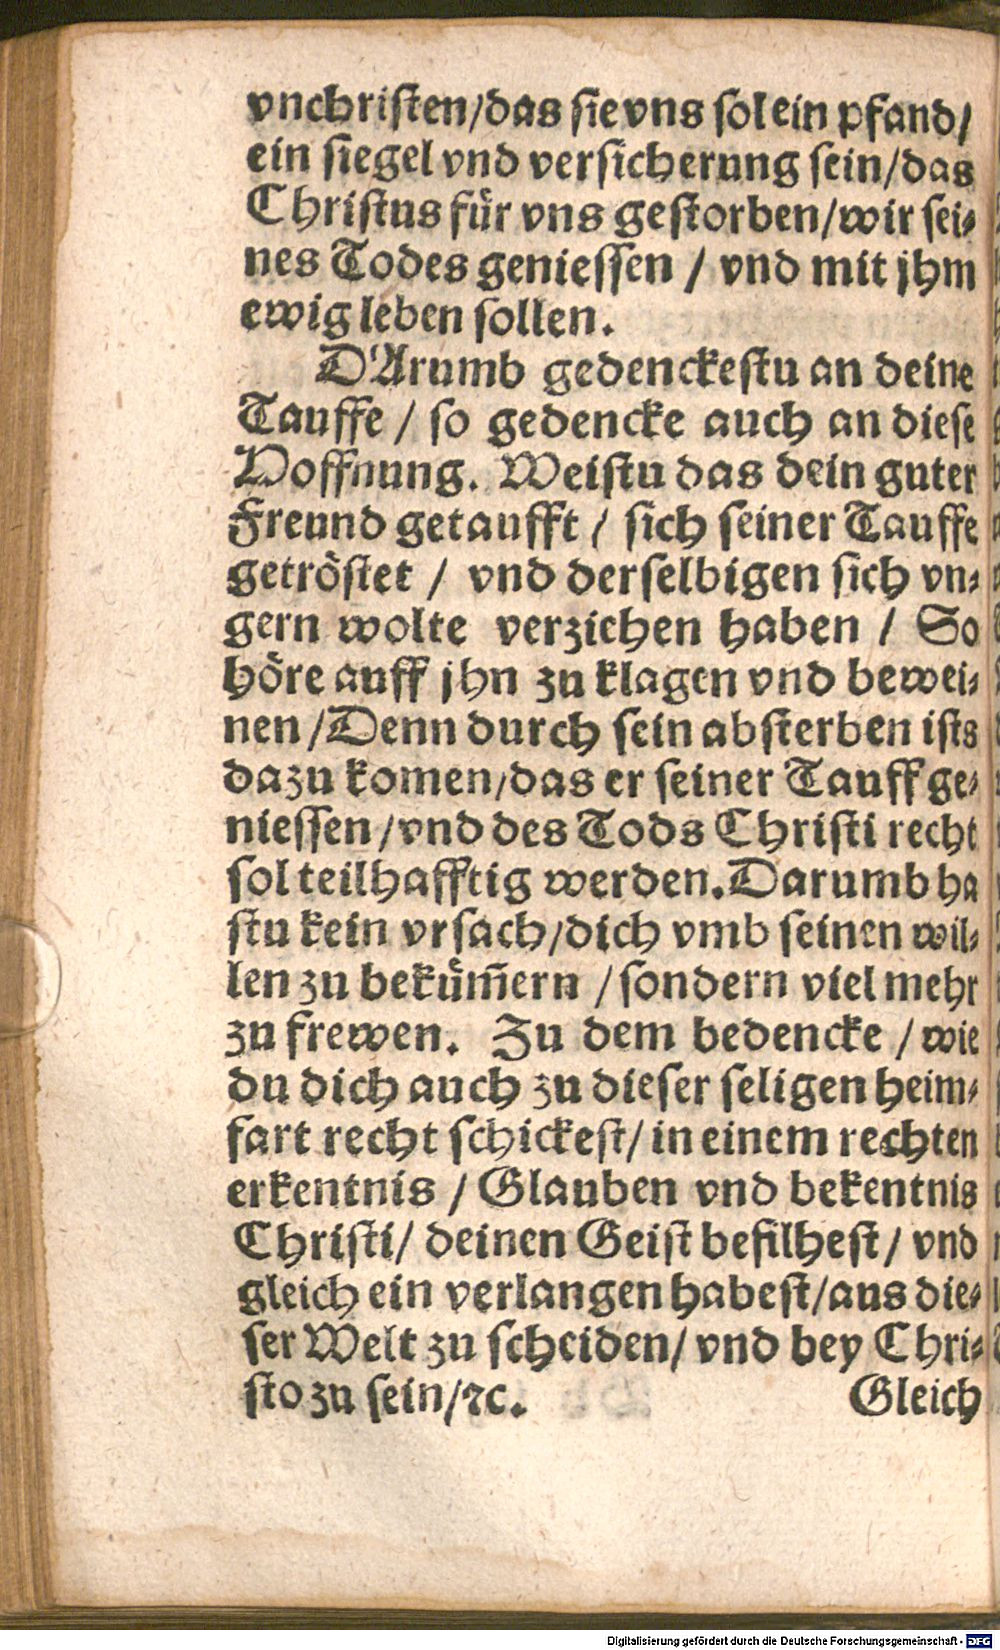 vnchriſten/das ſie vns ſol ein pfand/
ein ſiegel vnd verſicherung ſein/das
Chriſtus für vns geſtorben/wir ſei⸗
nes Todes genieſſen / vnd mit jhm
ewig leben ſollen.
DArumb gedenckeſtu an deine
Tauffe / ſo gedencke auch an dieſe
Hoffnung. Weiſtu das dein guter
Freund getaufft / ſich ſeiner Tauffe
getröſtet / vnd derſelbigen ſich vn⸗
gern wolte verziehen haben / So
höre auff jhn zu klagen vnd bewei⸗
nen /Denn durch ſein abſterben iſts
dazu komen/das er ſeiner Tauff ge⸗
nieſſen/vnd des Tods Chriſti recht
ſol teilhafftig werden. Darumb ha
ſtu kein vrſach/dich vmb ſeinen wil⸗
len zu bekům̄ern /ſondern viel mehr
zu frewen. Zu dem bedencke / wie
du dich auch zu dieſer ſeligen heim⸗
fart recht ſchickeſt/ in einem rechten
erkentnis / Glauben vnd bekentnis
Chriſti/ deinen Geiſt befilheſt/ vnd
gleich ein verlangen habeſt/aus die⸗
ſer Welt zu ſcheiden/ vnd bey Chri⸗
ſto zu ſein/ꝛc. Gleich
Digitalisierung gefördert durch die Deutsche Forschungsgemeinschaft - DFG